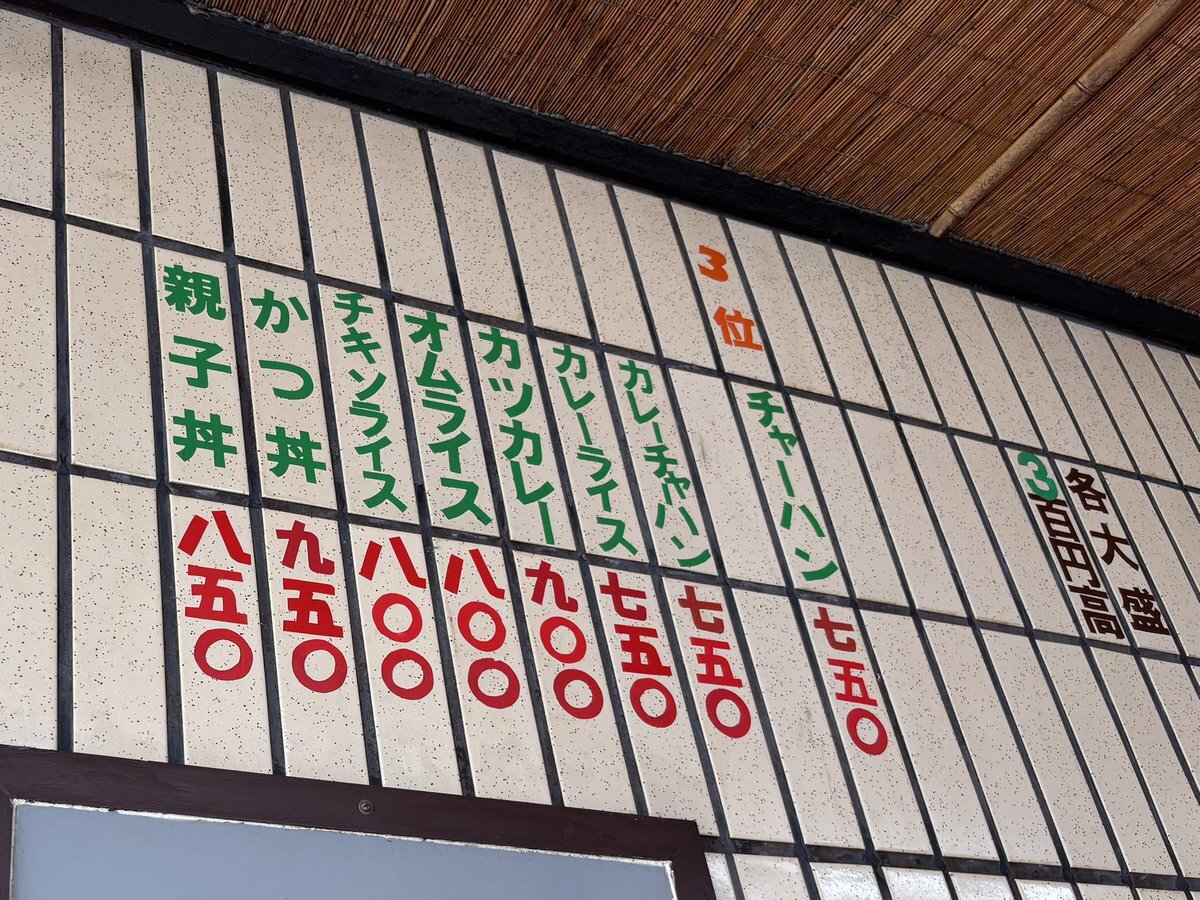 各大盛
3百円高
3位
チャーハン
七五〇
カレーチャハン
七五〇
カレーライス
七五〇
カツカレー
九〇〇
オムライス
八〇〇
チキンライス
八〇〇
かつ丼
九五〇
親子丼
八五〇